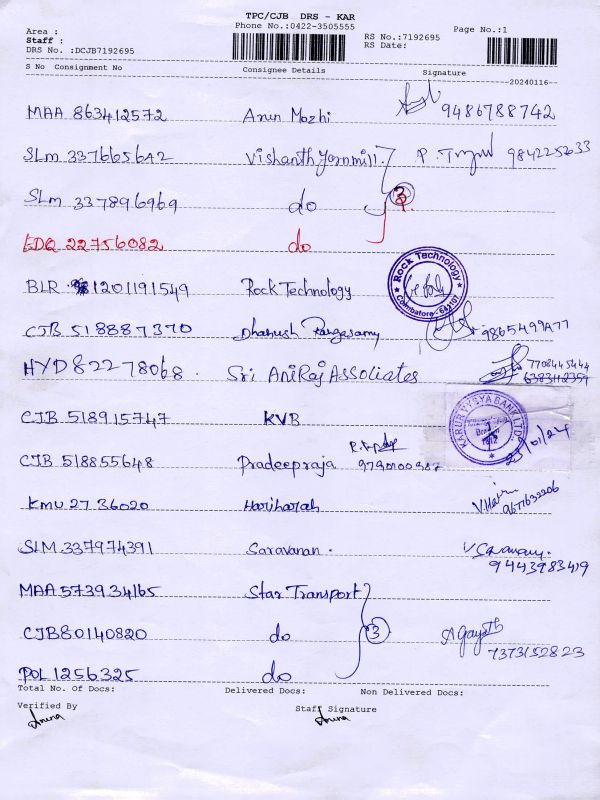 TPC/CJB DRS - KAR
Phone No.:0422-3505555
Area :
Staff :
DRS No. :DCJB7192695
RS No.:7192695
RS Date:
Page No.:1
S No Consignment No Consignee Details Signature
20240116
MAA 863412572 Arun Mozhi 9486788742
SLM 337665642 Vishanth Yarnmill 984225633
SLM 337896969 do 3
EDQ 22756082 do
BLR 1201191549 Rock Technology
Rock Technology Coimbatore-641107
CJB 518887370 Dhanush Rangasamy 9865499A77
HYD 82278068 Sri AniRaj Associates 7708445444
6383112354
CJB 518915747 KVB
KARUR VYSYA BANK LTD.
CJB 518855648 Pradeepraja
KMU 2736020 Hariharah V.Hari 9677632206
SLM 337974391 Saravanan. V Saravanan.
9443983419
MAA 573934165 Star Transport
CJB80140820 do 3
7373152823
POL 1256325 do
Total No. Of Docs: Delivered Docs: Non Delivered Docs:
Verified By Staff Signature
Aruna Aruna